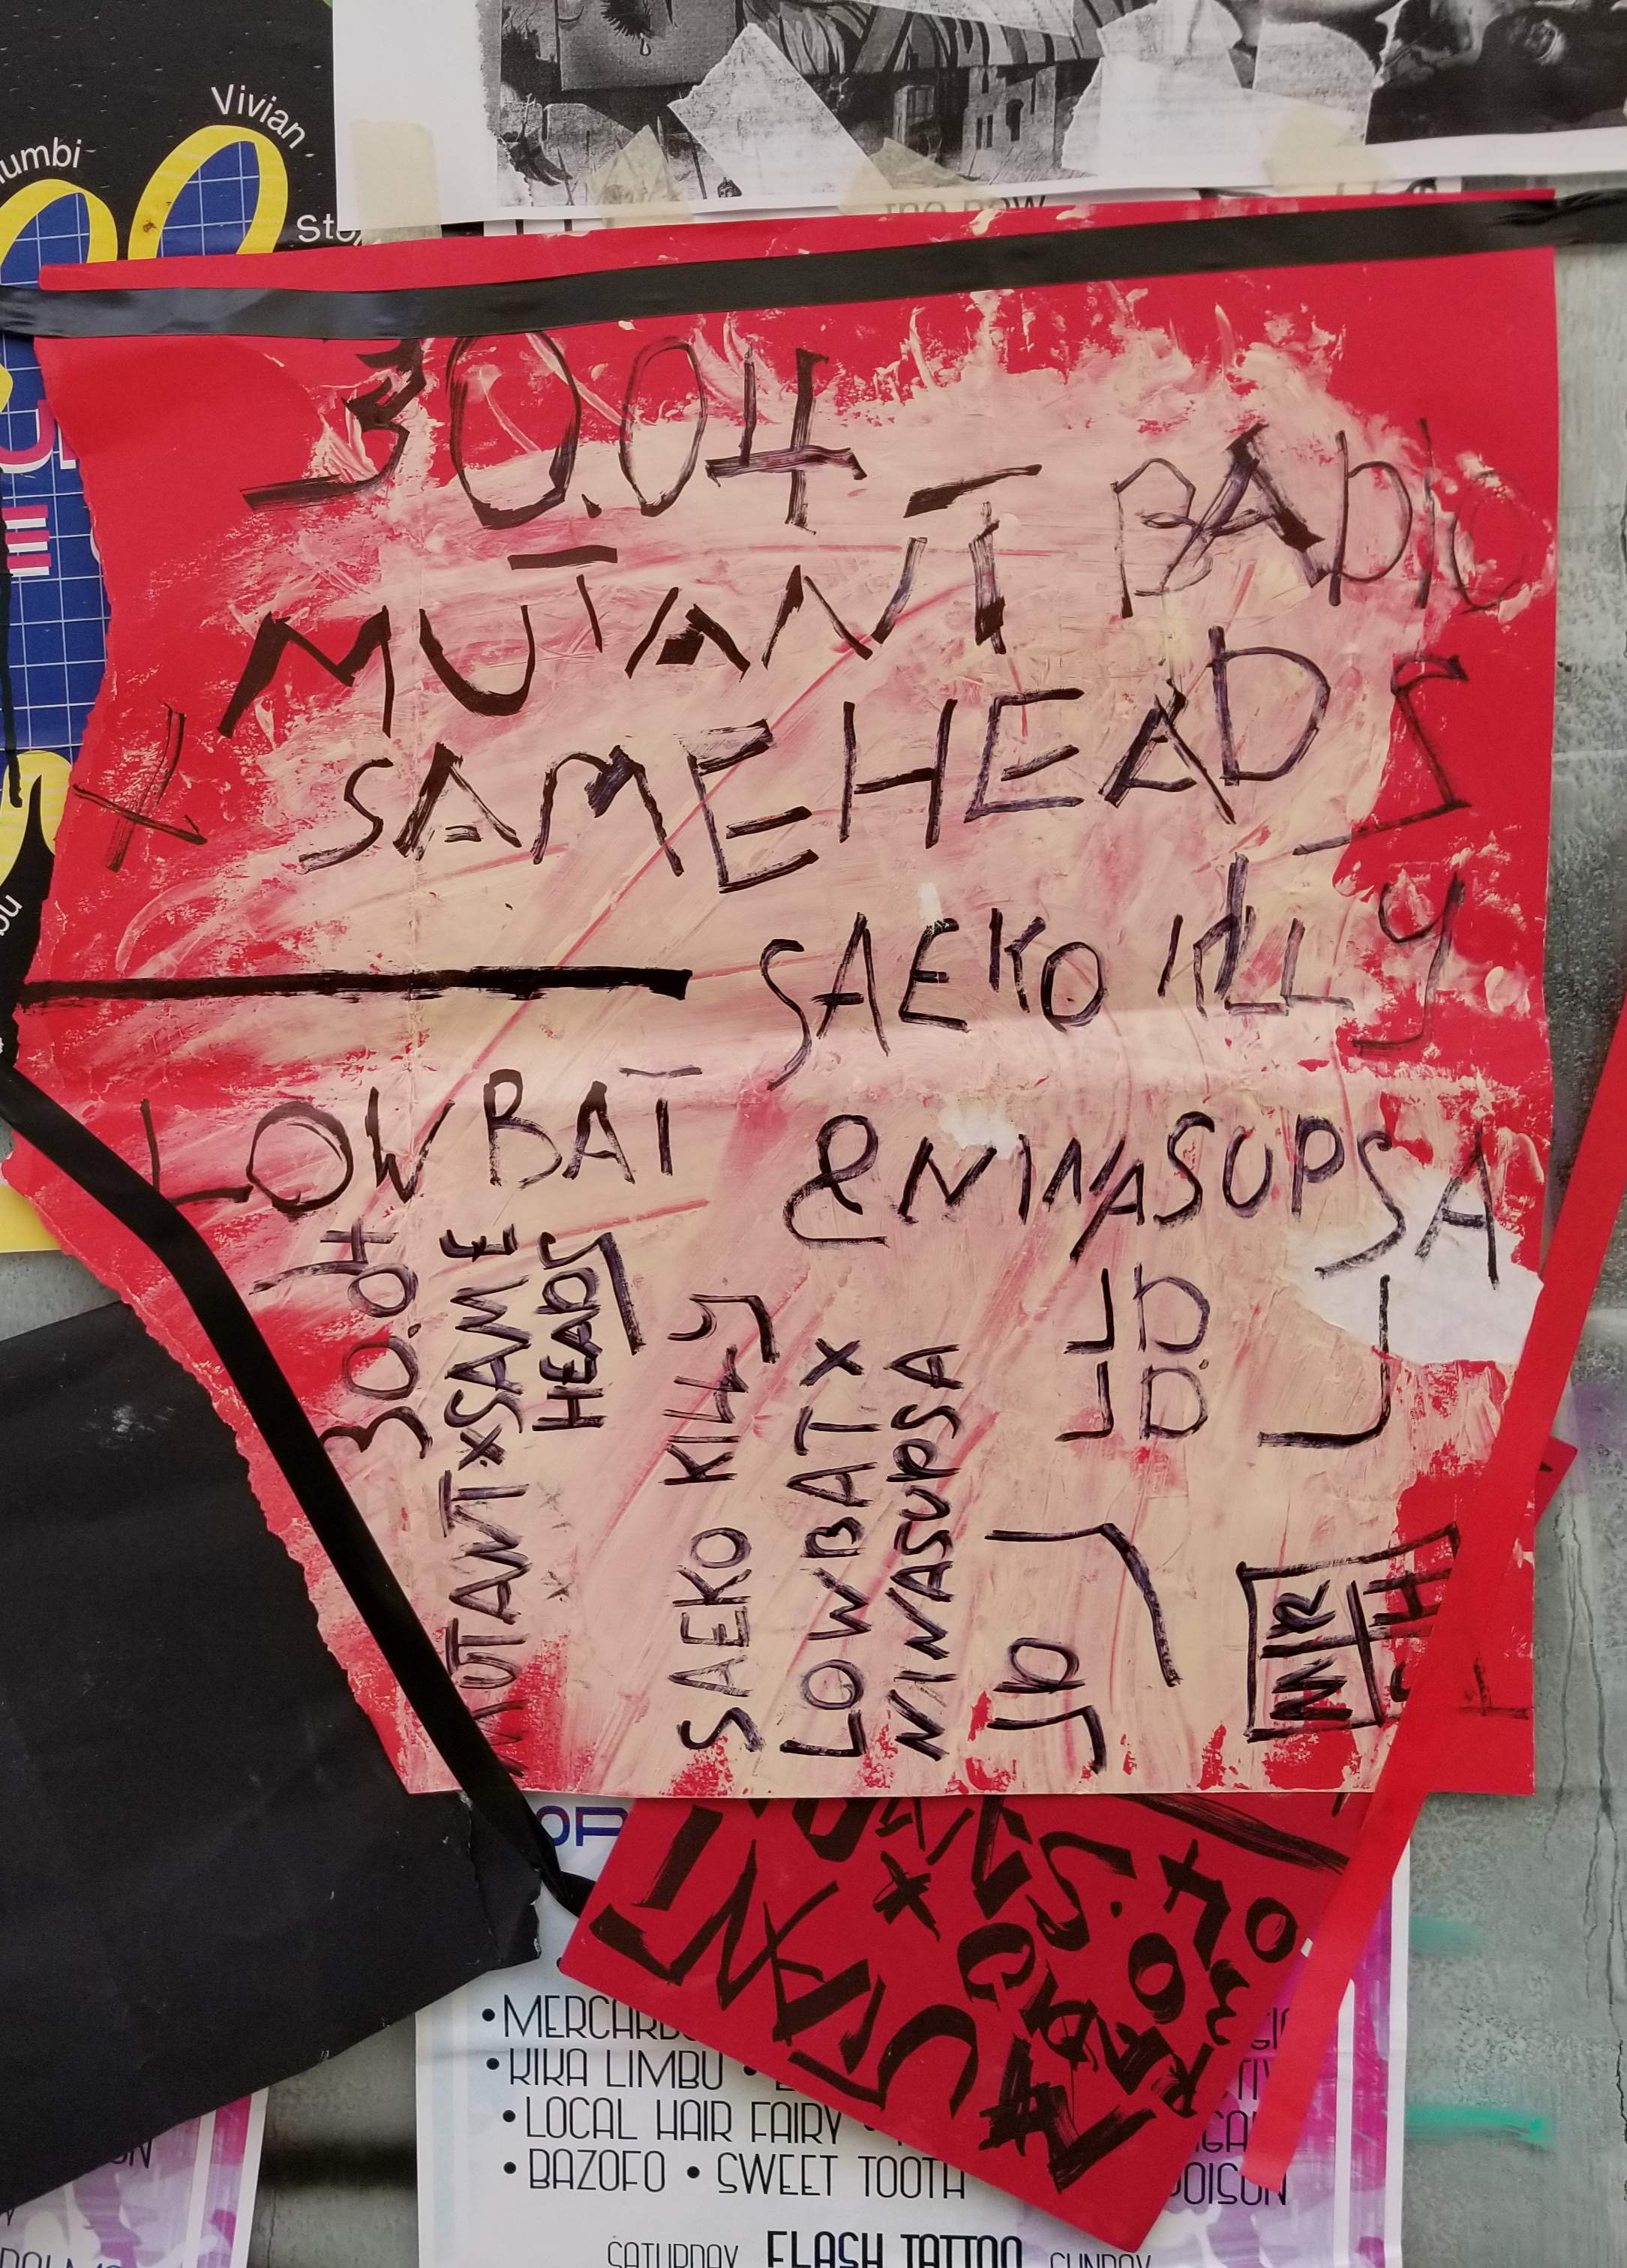 Vivian
30.04
MUTANT RADIO
X SAMEHEADS
SAEKO KILLY
LOW BAT
&NINASUPSA
30.04
MUTANT x SAME
HEADS
SAEKO KILLY
LOWBAT X
NINASUPSA
MR
SH
MUTANT
RADIO X
30.04
• KIKA LIMBU •
• LOCAL HAIR FAIRY •
• BAZOFO • SWEET TOOTH
SATURDAY FLASH TATTOO SUNDAY